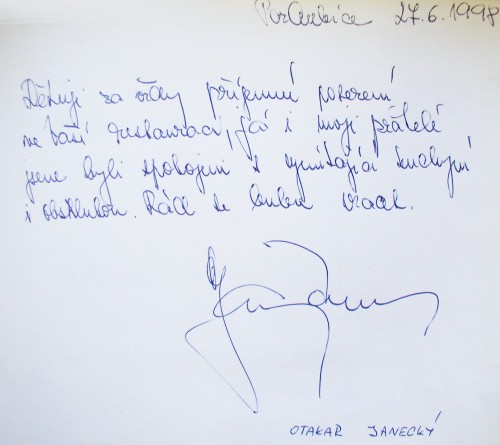 Pardubice 27.6.1998
Děkuji za vždy příjemné posezení
ve Vaší restauraci, já i moji přátelé
jsme byli spokojeni s vynikající kuchyní
i obsluhou. Rád se budu vracet.
OTAKAR JANECKÝ